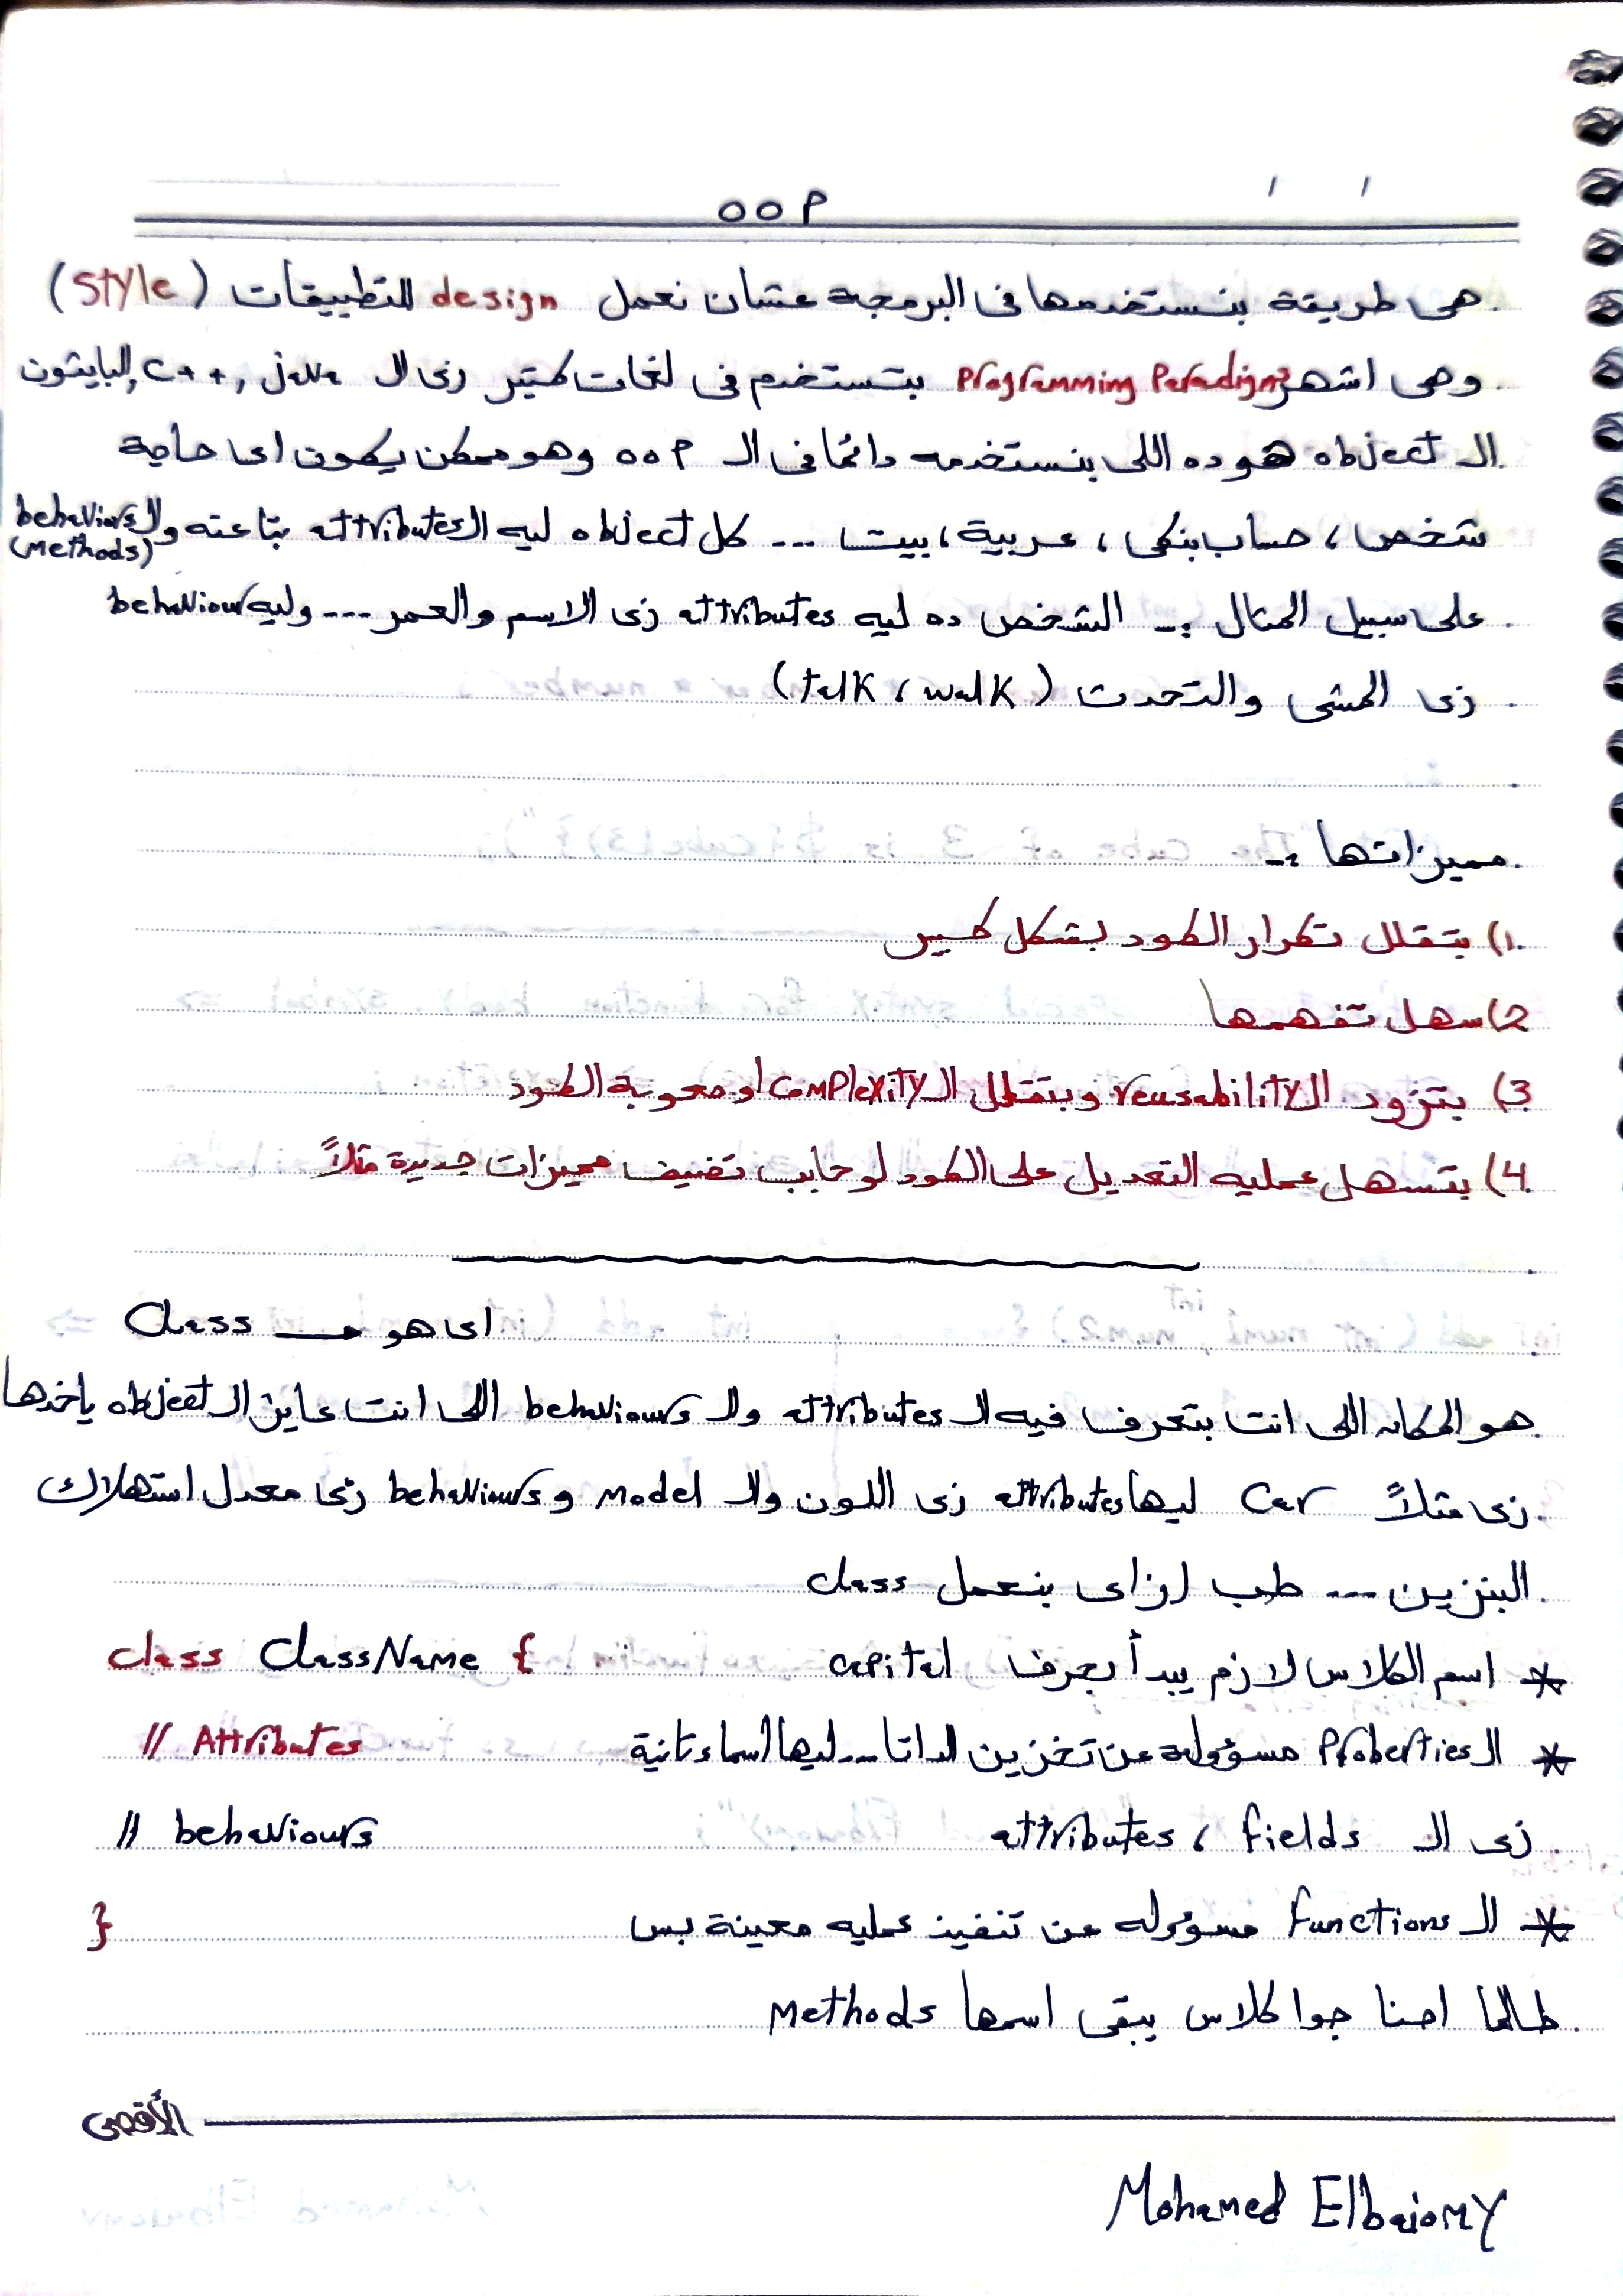 OOP
هى طريقة بنستخدمها فى البرمجة عشان نعمل design للتطبيقات (Style)
وهى اشهر Programming Paradigm بتستخدم فى لغات كتير زى ال C++, java, البايثون
ال object هو ده اللى بنستخدمه دائما فى ال OOP وهو ممكن يكون اى حاجة
شخص، حساب بنكى، عربية، بيت --- كل object ليه ال attributes بتاعته وال behaviors (Methods)
على سبيل المثال :- الشخص ده ليه attributes زى الاسم والعمر --- وليه behaviour
زى المشى والتحدث (talk، walk)
مميزاتها :-
1) بتقلل تكرار الكود بشكل كبير
2) سهل تفهمها
3) بتزود ال reusability وبتقلل ال complexity او صعوبة الكود
4) بتسهل عمليه التعديل على الكود لو حابب تضيف مميزات جديدة مثلاً
اى هو ← Class
هو المكان اللى انت بتعرف فيه ال attributes وال behaviours اللى انت عايز ال object ياخدها
زى مثلاً Car ليها attributes زى اللون وال Model و behaviours زى معدل استهلاك
البنزين --- طب ازاى بنعمل class
* اسم الكلاس لازم يبدأ بحرف capital
class ClassName {
* ال Proberties مسؤوله عن تخزين الداتا --- ليها اسماء تانية
// Attributes
زى ال attributes، fields
// behaviours
* ال Functions مسؤوله عن تنفيذ عمليه معينة بس
}
طالما احنا جوا كلاس يبقى اسمها Methods
الأقصى
Mohamed Elbaiomy